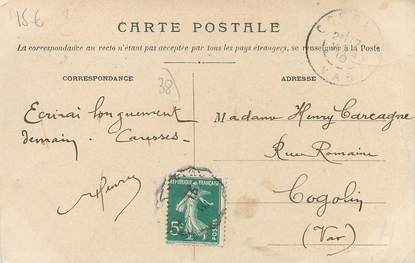 15€
CARTE POSTALE
La correspondance au recto n'étant pas acceptée par tous les pays étrangers, se renseigner à la Poste
CORRESPONDANCE
38
ADRESSE
Ecrirai longuement
demain. Caresses
Henry
Madame Henry Carcagne
Rue Romaine
Cogolin
(Var)
REPUBLIQUE FRANÇAISE
5c
POSTES
COGOLIN
VAR